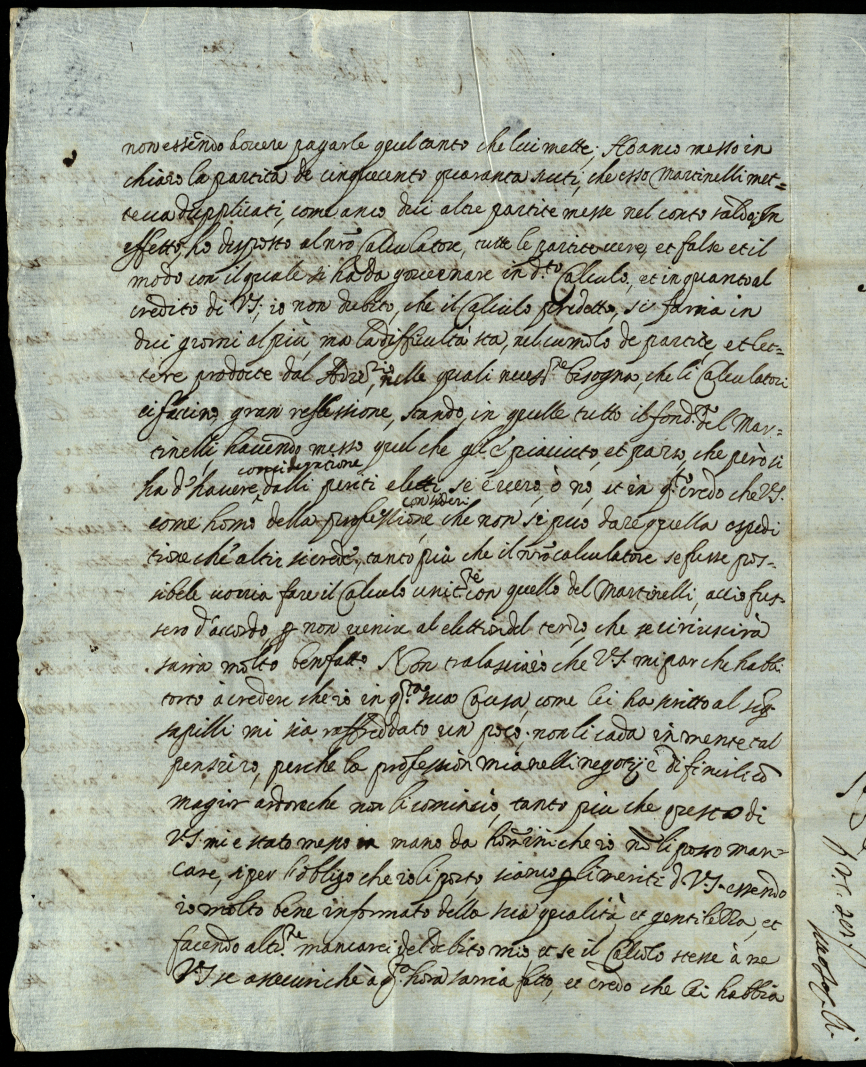 non essendo dovere pagarle quel tanto che lui mette; Ho anco messo in
chiaro la partita de cinquecento quaranta scuti, che esso Martinelli met=
teva dupplicati, come anco dui altre partite messe nel conto saldo; In
effetto, ho disposto al nro Calculatore, tutte le partite vere, et false et il
modo con il quale si ha da governare in d.to Calculo, et in quanto al
credito di VS; io non dubito, che il Calculo predetto, si farria in
dui giorni al più, ma la difficultà sta, nel cumolo de partite, et let=
tere prodotte dal Advers.rio, nelle quali necess.te bisogna, che li Calculatori
ci facino, gran reflessione, stando, in quelle tutto il fond.to del Mar=
tinelli, havendo messo quel che gl'è piaciuto, et parso, che però si
ha d'havere consideratione dalli periti eletti, se è vero, ò no, et in q.to credo che VS.
come homo della professione consideri che non si può dare quella espedi
tione che altri si crede, tanto più che il nro calculatore se fusse pos=
sibele vorria fare il Calculo unit.te con quello del Martinelli, acciò fus=
sero d'accordo, p non venire al elettion del terzo, che se ci riuscirà
sarria molto ben fatto. Non tralasciarò che VS. mi par che habbi
torto à credere che io in q.ta sua Causa, come lei ha scritto al sig.r
sapilli mi sia raffreddato un poco. non li cada in mente tal
pensiero, perche la profession mia nelli negotij è di finirli cō
magior ardore che non li comincio, tanto più che questo di
VS. mi è stato messo in mano da homini che io nō li posso man=
care, si per l'obligo che io li porto, si anco p li meriti d VS. essendo
io molto bene informato della sua qualità et gentilezza, et
facendo altr.te mancarei del debito mio et se il Calculo stesse à me
VS se assecuri che à q.to hora sarria fatto, et credo che lei habbia